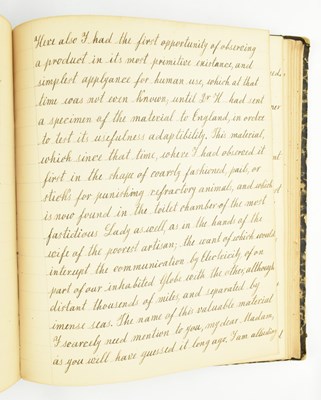 Here also I had the first opportunity of observing
a product in its most primitive existance, and
simplest applyance for human use, which at that
time was not even known, until Dr H. had sent
a specimen of the material to England, in order
to test its usefulness adaptibility. This material,
which since that time, where I had observed it
first in the shape of coarly fashioned, pail, or
sticks for punishing refractory animals, and which
is now found in the toilet chamber of the most
fastidious Lady as well, as in the hands of the
wife of the poorest artisan; the want of which would
interrupt the communication by Electricity of on
part of our inhabited Globe with the other, although
distant thousands of miles, and separated by
imense seas. The name of this valuable material
I scarcely need mention to you, my dear Madam,
as you will have guessed it long ago, I am alluding